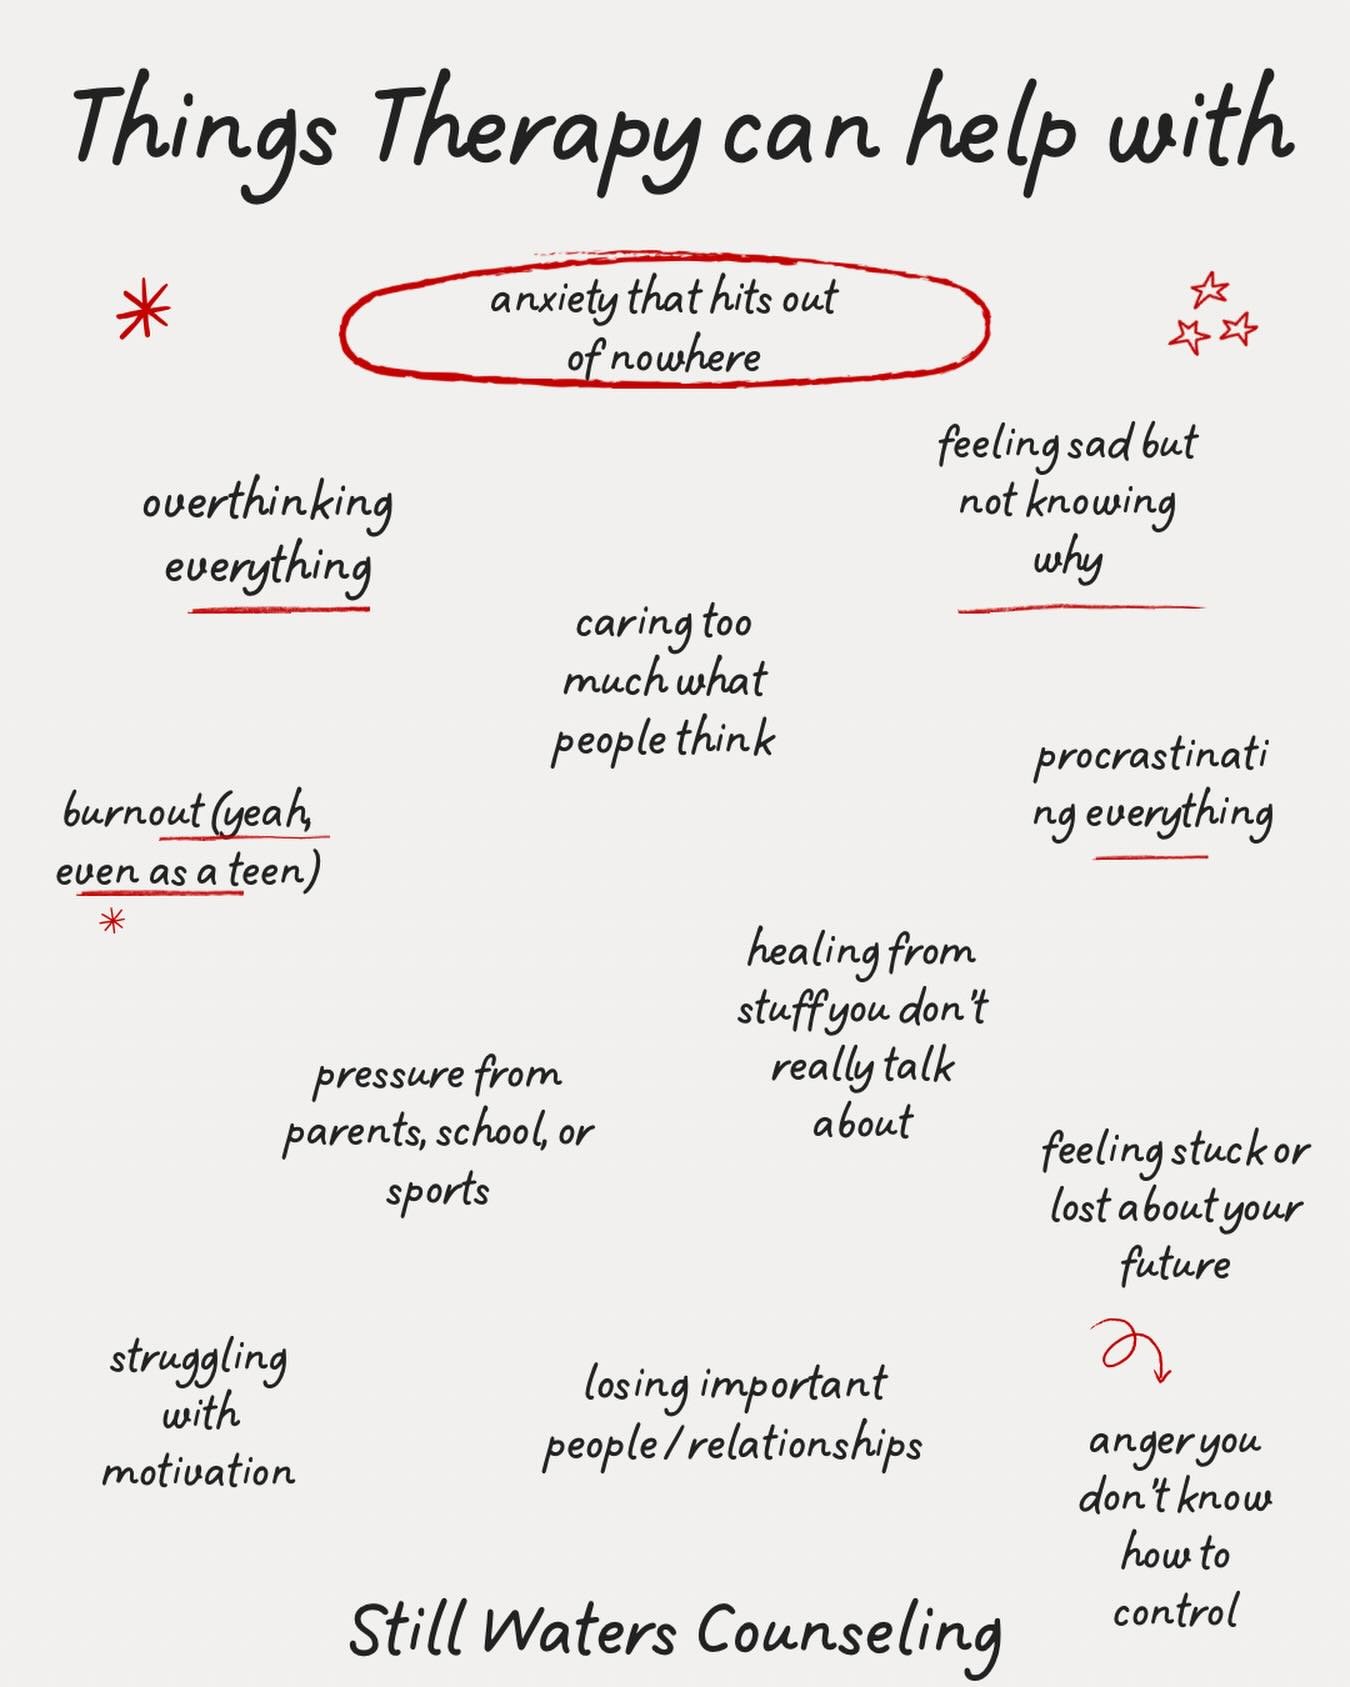 Things Therapy can help with
anxiety that hits out
of nowhere
overthinking
everything
feeling sad but
not knowing
why
caring too
much what
people think
burnout (yeah,
even as a teen)
procrastinati
ng everything
healing from
stuff you don't
really talk
about
pressure from
parents, school, or
sports
feeling stuck or
lost about your
future
struggling
with
motivation
losing important
people / relationships
anger you
don't know
how to
control
Still Waters Counseling